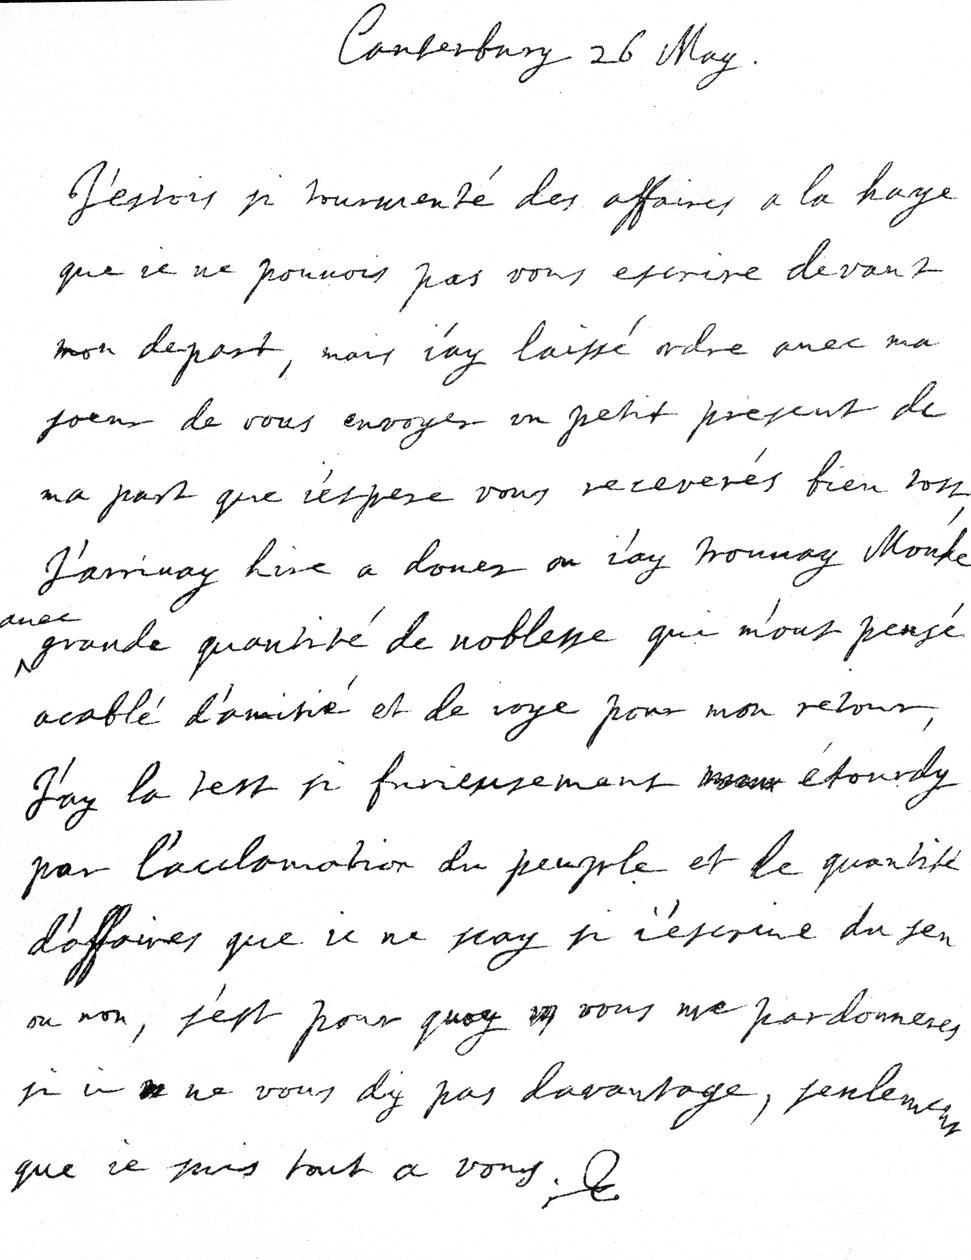 Canterbury 26 May.
J'estois si tourmenté des affaires a la haye
que ie ne pouuois pas vous escrire devant
mon depart, mais i'ay laissé ordre auec ma
soeur de vous envoyer vn petit present de
ma part que i'espere vous receverés bien tost
J'arriuay hire a douer ou i'ay trouuay Monke
auec
grande quantité de noblesse qui m'ont pensé
acablé d'amitié et de ioye pour mon retour,
J'ay la test si furieusement étourdy
par l'acclamation du peuple et le quantité
d'affaires que ie ne scay si i'escriue du sen
ou non, s'est pour quoy vous me pardonneres
si ie ne vous dis pas davantage, seulement
que ie suis tout a vous. C